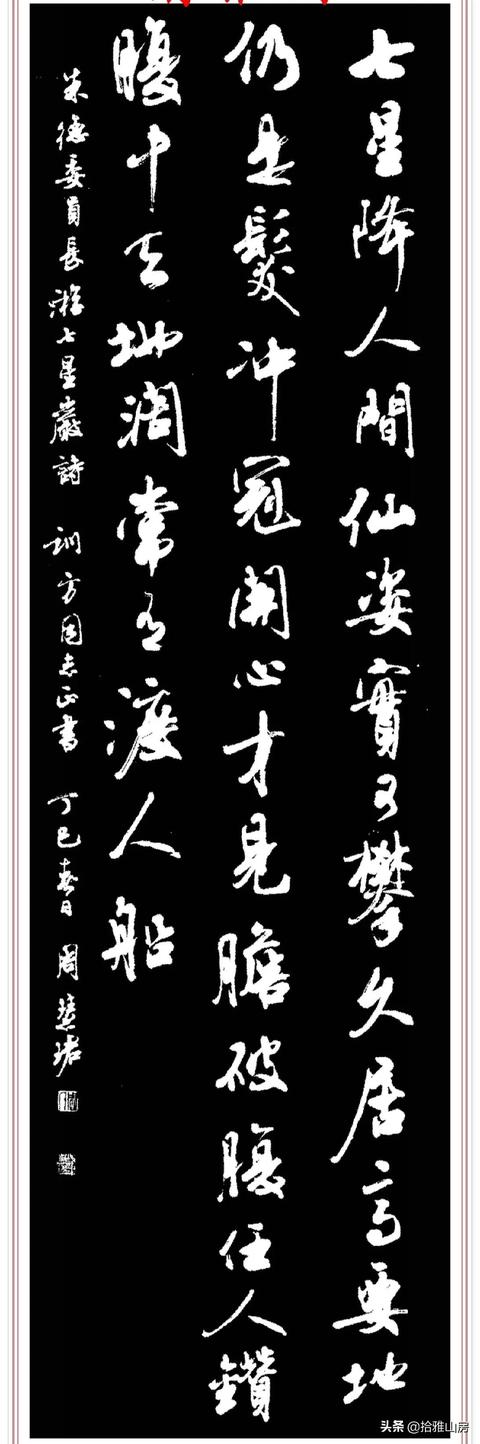 七星降人間仙姿實可攀久居高要地
仍是髮冲冠開心才見膽破腹任人鑽
腹中天地闊常有渡人船
朱德委員長游七星巖詩 訓方同志正書 丁巳春日 周慧珺
头条 @拾雅山房